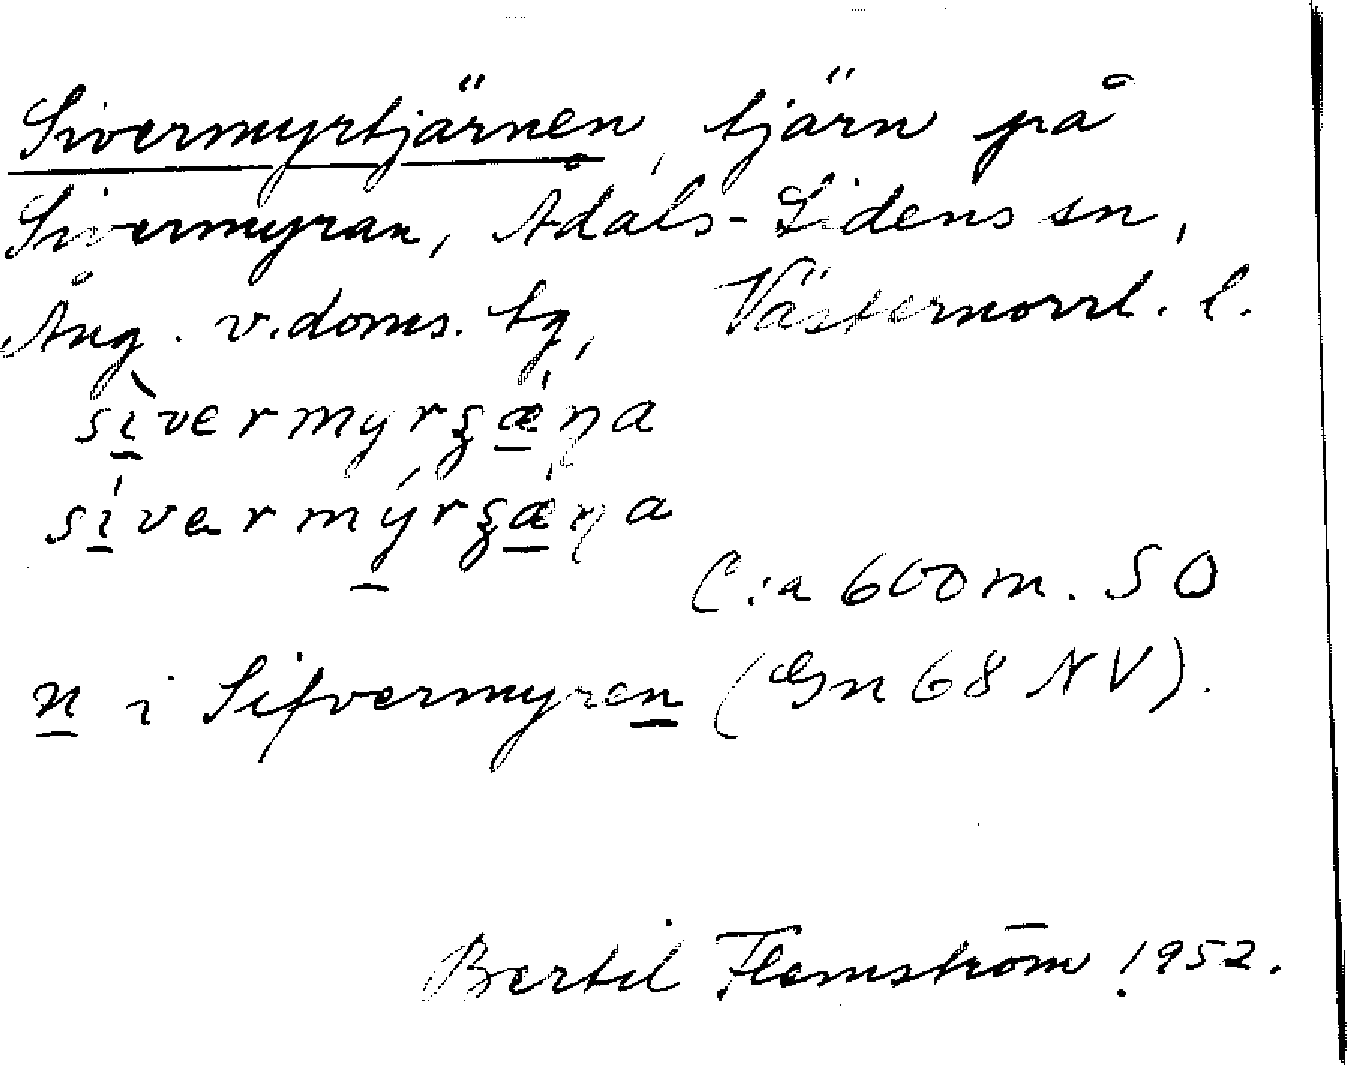 Sivermyrtjärnen, tjärn på
Sivermyran, Ådals-Lidens sn,
Ång. v. doms. tg, Västernorrl. l.
sìvermyrʂǽṇa
sívermýrʂǽṇa
C:a 600 m. SO
n i Sifvermyren (Gn 68 NV).
Bertil Flemström 1952.